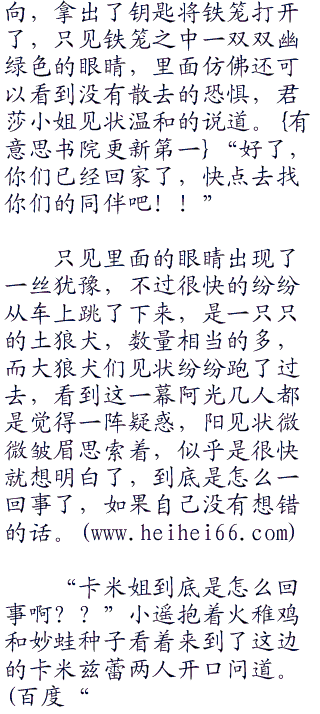 向，拿出了钥匙将铁笼打开
了，只见铁笼之中一双双幽
绿色的眼睛，里面仿佛还可
以看到没有散去的恐惧，君
莎小姐见状温和的说道。{有
意思书院更新第一}“好了，
你们已经回家了，快点去找
你们的同伴吧！！”
只见里面的眼睛出现了
一丝犹豫，不过很快的纷纷
从车上跳了下来，是一只只
的土狼犬，数量相当的多，
而大狼犬们见状纷纷跑了过
去，看到这一幕阿光几人都
是觉得一阵疑惑，阳见状微
微皱眉思索着，似乎是很快
就想明白了，到底是怎么一
回事了，如果自己没有想错
的话。(www.heihei66.com)
“卡米姐到底是怎么回
事啊？？”小遥抱着火稚鸡
和妙蛙种子看着来到了这边
的卡米兹蕾两人开口问道。
(百度“